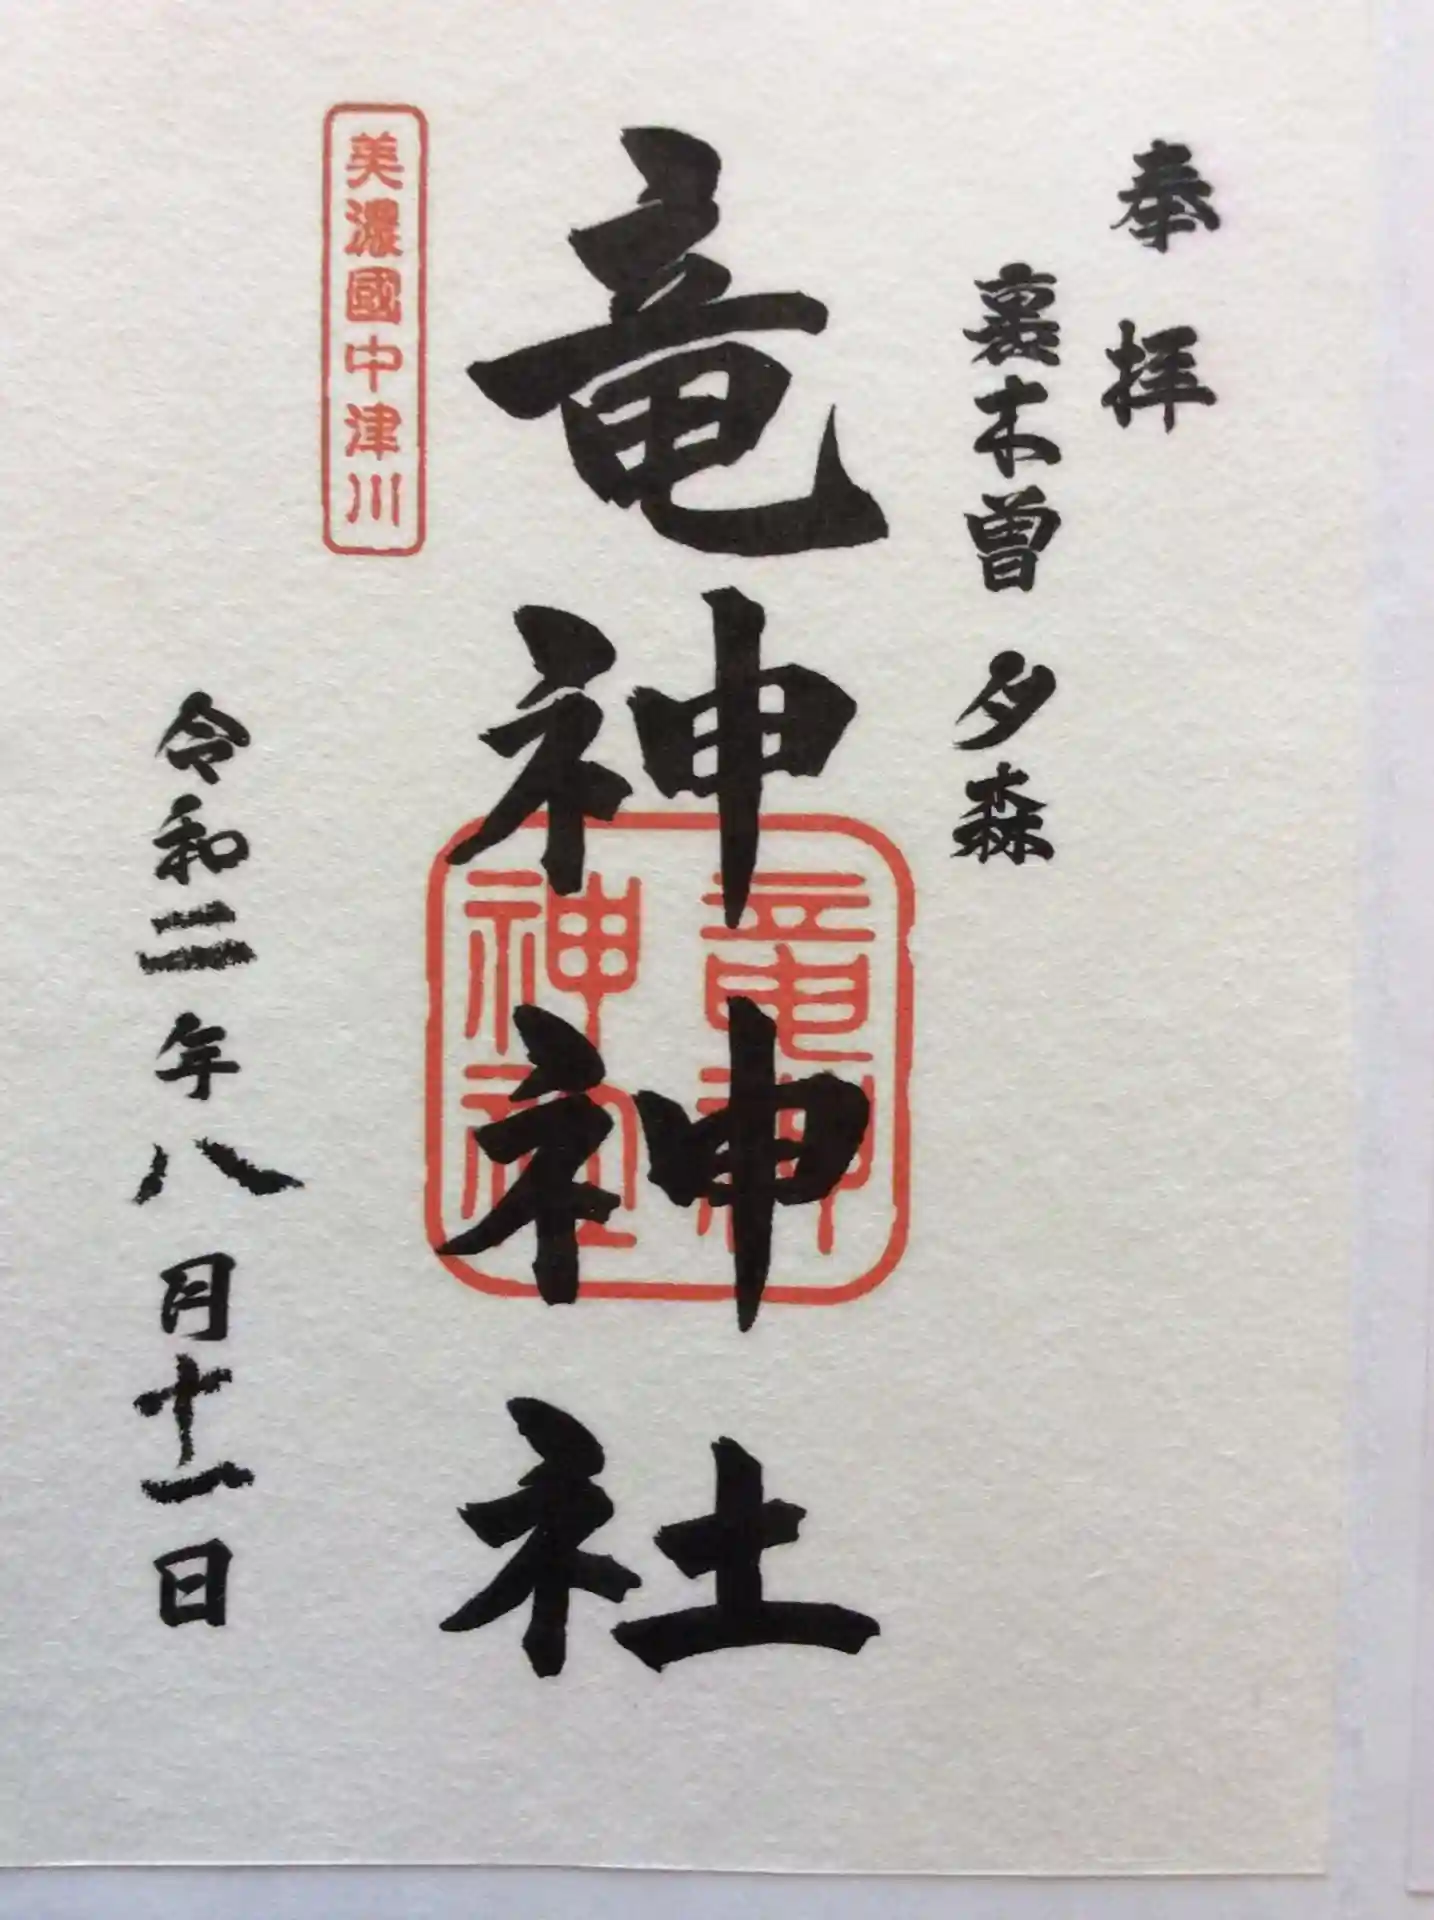 奉拝
裏木曽 夕森
竜神神社
竜神
神社
美濃國中津川
令和二年八月十一日